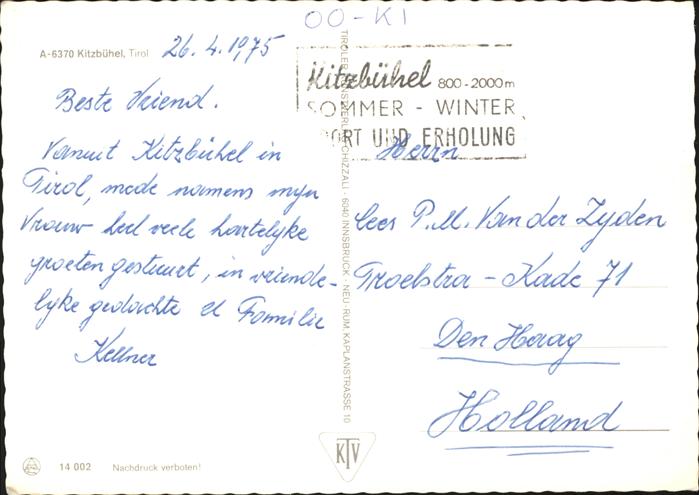 OO-KI
A-6370 Kitzbühel, Tirol
26.4.1975
Kitzbühel 800-2000m
SOMMER - WINTER
PORT UND ERHOLUNG
Beste Vriend.
Vanuit Kitzbühel in
Tirol, mede namens mijn
Vrouw heel veele hartelyke
groeten gestuurt, in vriende-
lyke gedachte
Familie
Kellner
Herrn
Cees P.M. Van der Zyden
Troelstra - Kade 71
Den Haag
Holland
TIROLER KUNSTVERLAG CHIZZALI · 6040 INNSBRUCK - NEU-RUM, KAPLANSTRASSE 10
KTV
14 002 Nachdruck verboten!